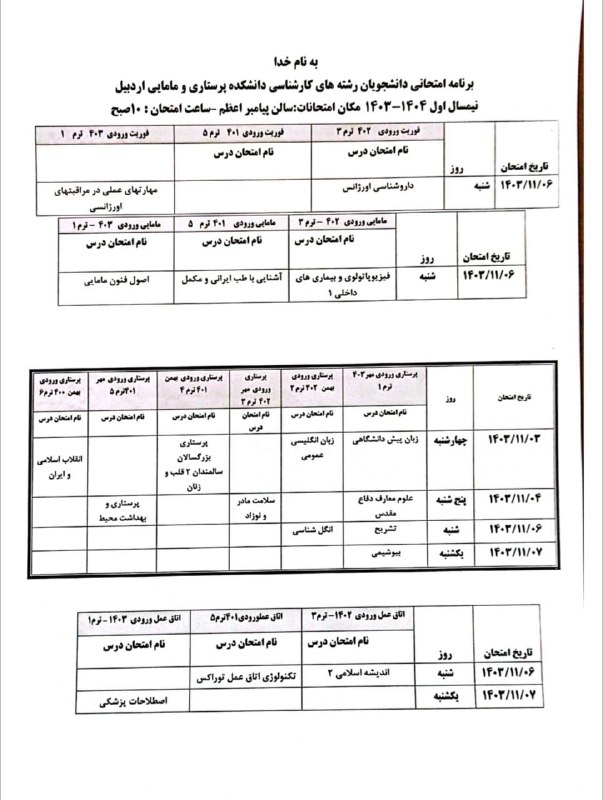 به نام خدا
برنامه امتحانی دانشجویان رشته های کارشناسی دانشکده پرستاری و مامایی اردبیل
نیمسال اول ۱۴۰۴-۱۴۰۳ مکان امتحانات:سالن پیامبر اعظم -ساعت امتحان : ۱۰صبح
تاریخ امتحان روز فوریت ورودی ۴۰۲ ترم ۳ فوریت ورودی ۴۰۱ ترم ۵ فوریت ورودی ۴۰۳ ترم ۱
نام امتحان درس نام امتحان درس نام امتحان درس
۱۴۰۳/۱۱/۰۶ شنبه داروشناسی اورژانس مهارتهای عملی در مراقبتهای
اورژانسی
تاریخ امتحان روز مامایی ورودی ۴۰۲ -ترم ۳ مامایی ورودی ۴۰۱ ترم ۵ مامایی ورودی ۴۰۳ - ترم ۱
نام امتحان درس نام امتحان درس نام امتحان درس
۱۴۰۳/۱۱/۰۶ شنبه فیزیوپاتولوی و بیماری های آشنایی با طب ایرانی و مکمل اصول فنون مامایی
داخلی ۱
تاریخ امتحان روز پرستاری ورودی مهر۴۰۳ پرستاری ورودی پرستاری پرستاری ورودی بهمن پرستاری ورودی مهر پرستاری ورودی
ترم ۱ بهمن ۴۰۲ ترم ۲ ورودی مهر ۴۰۱ ترم ۴ ۴۰۱ترم ۵ بهمن ۴۰۰ ترم ۶
۴۰۲ ترم ۳
نام امتحان درس نام امتحان درس نام امتحان نام امتحان درس نام امتحان درس نام امتحان درس
درس
۱۴۰۳/۱۱/۰۳ چهارشنبه زبان پیش دانشگاهی زبان انگلیسی پرستاری انقلاب اسلامی
عمومی بزرگسالان و ایران
سالمندان ۲ قلب و
زنان
۱۴۰۳/۱۱/۰۴ پنج شنبه علوم معارف دفاع سلامت مادر پرستاری و
مقدس و نوزاد بهداشت محیط
۱۴۰۳/۱۱/۰۶ شنبه تشریح انگل شناسی
۱۴۰۳/۱۱/۰۷ یکشنبه بیوشیمی
تاریخ امتحان روز اتاق عمل ورودی ۱۴۰۲-ترم۳ اتاق عملورودی۴۰۱ترم۵ اتاق عمل ورودی ۱۴۰۳-ترم۱
نام امتحان درس نام امتحان درس نام امتحان درس
۱۴۰۳/۱۱/۰۶ شنبه اندیشه اسلامی ۲ تکنولوژی اتاق عمل توراکس
۱۴۰۳/۱۱/۰۷ یکشنبه اصطلاحات پزشکی